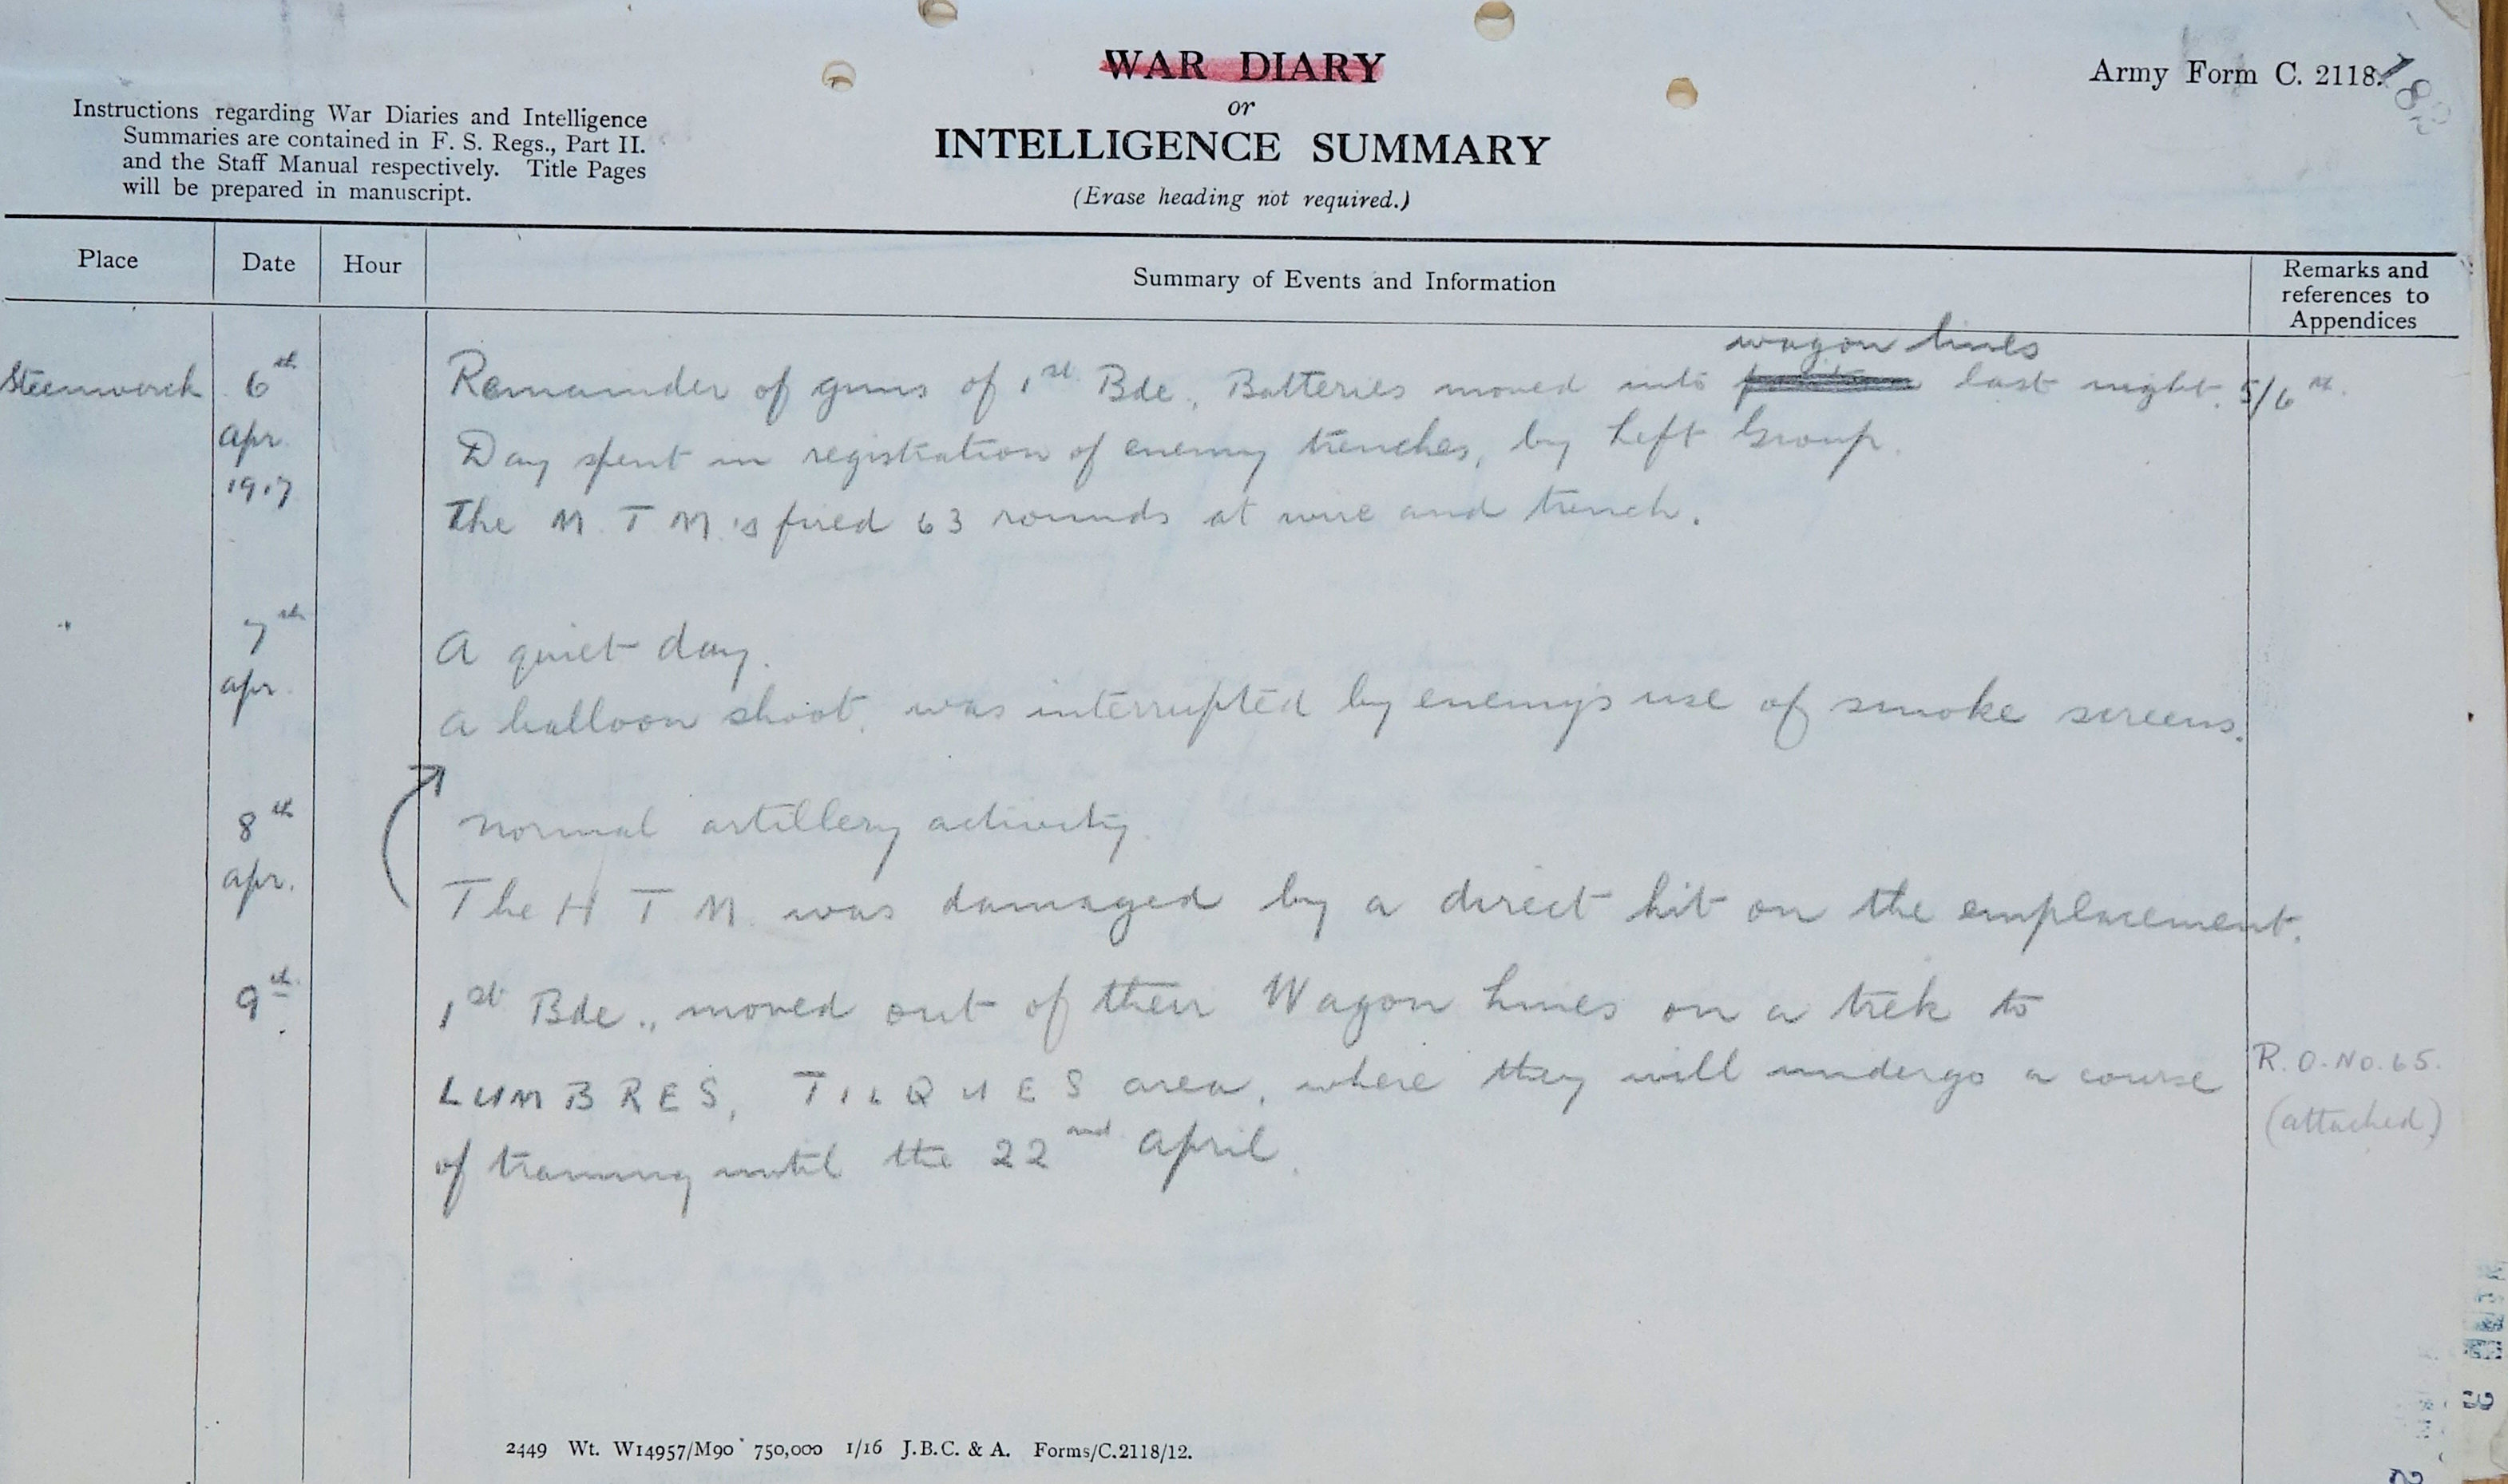 WAR DIARY
or
INTELLIGENCE SUMMARY
(Erase heading not required.)
Army Form C. 2118.
182
Instructions regarding War Diaries and Intelligence
Summaries are contained in F. S. Regs., Part II.
and the Staff Manual respectively. Title Pages
will be prepared in manuscript.
Place Date Hour Summary of Events and Information Remarks and
references to
Appendices
wagon lines
Steenwerck 6th Remainder of guns of 1st Bde, Batteries moved into last night. 5/6th.
apr. Day spent in registration of enemy trenches, by Left Group.
1917 The M T M's fired 63 rounds at wire and trench.
" 7th A quiet day.
apr. A balloon shoot, was interrupted by enemy's use of smoke screens.
8th Normal artillery activity.
apr. The H T M was damaged by a direct hit on the emplacement.
9th 1st Bde., moved out of their Wagon Lines on a trek to
LUMBRES, TILQUES area, where they will undergo a course R.O. No. 65.
of training until the 22nd April. (attached)
2449 Wt. W14957/M90 750,000 1/16 J.B.C. & A. Forms/C.2118/12.